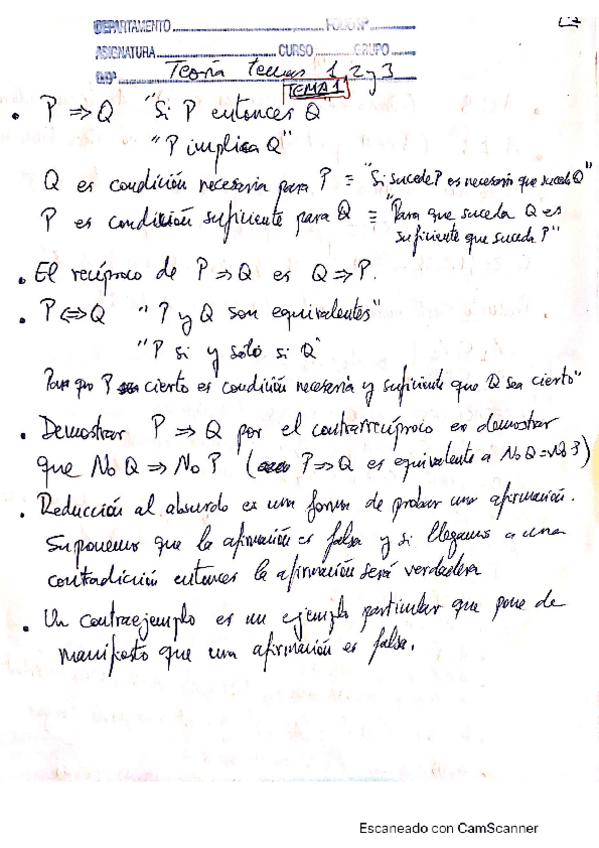 DEPARTAMENTO FOLIO Nº
ASIGNATURA CURSO GRUPO
Teoría temas 1, 2 y 3
TEMA 1
• P ⇒ Q "Si P entonces Q"
"P implica Q"
Q es condición necesaria para P ≡ "Si sucede P es necesario que suceda Q"
P es condición suficiente para Q ≡ "Para que suceda Q es
suficiente que suceda P"
• El recíproco de P ⇒ Q es Q ⇒ P.
• P ⇔ Q "P y Q son equivalentes"
"P si y sólo si Q"
Para que P sea cierto es condición necesaria y suficiente que Q sea cierto"
• Demostrar P ⇒ Q por el contrarrecíproco es demostrar
que No Q ⇒ No P ( P ⇒ Q es equivalente a No Q ⇒
• Reducción al absurdo es una forma de probar una afirmación.
Suponemos que la afirmación es falsa y si llegamos a una
contradición entonces la afirmación será verdadera
• Un contraejemplo es un ejemplo particular que pone de
manifiesto que una afirmación es falsa.
Escaneado con CamScanner